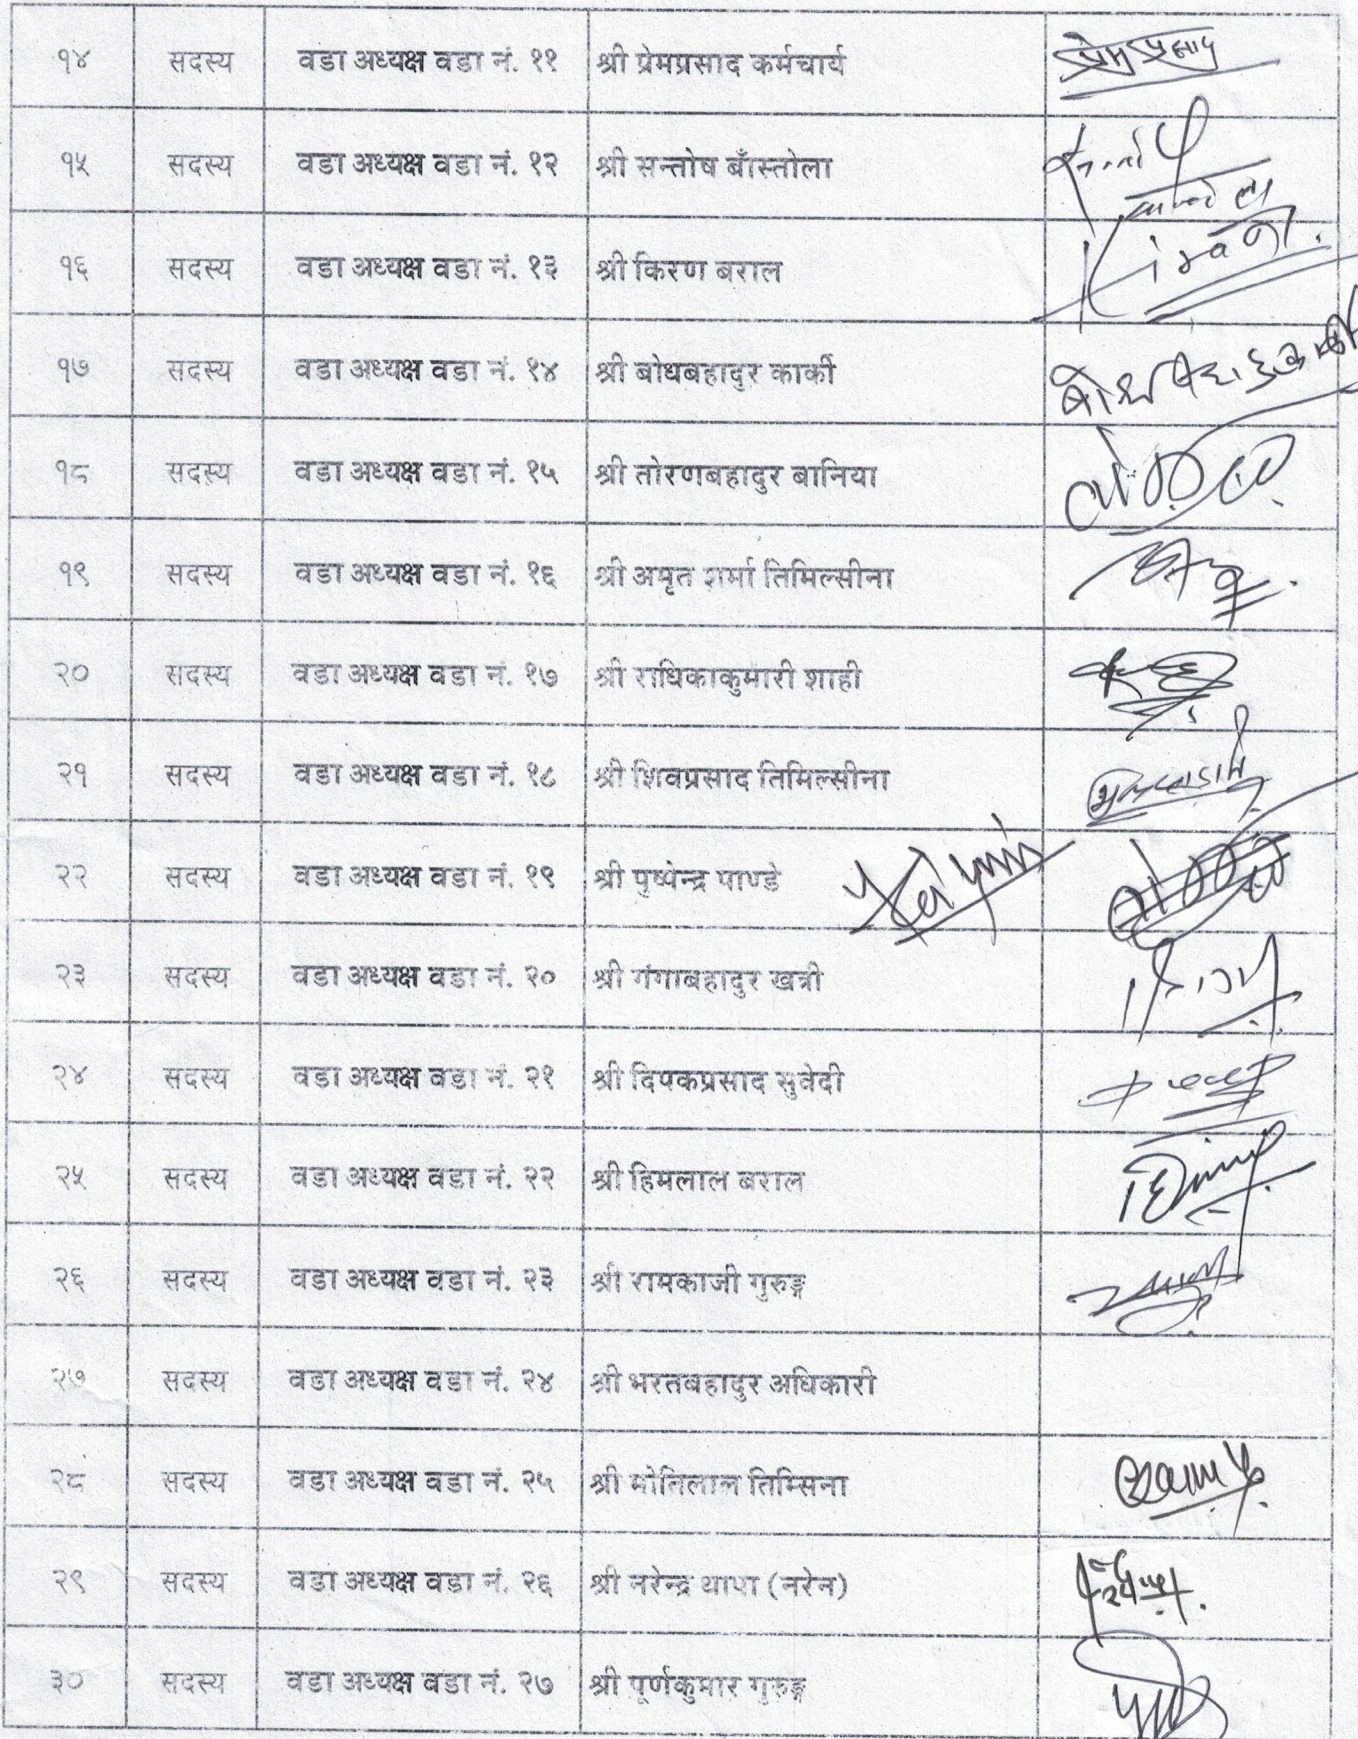 १४ सदस्य वडा अध्यक्ष वडा नं. ११ श्री प्रेमप्रसाद कर्मचार्य प्रेमप्रसाद
१५ सदस्य वडा अध्यक्ष वडा नं. १२ श्री सन्तोष बाँस्तोला
१६ सदस्य वडा अध्यक्ष वडा नं. १३ श्री किरण बराल
१७ सदस्य वडा अध्यक्ष वडा नं. १४ श्री बोधबहादुर कार्की
१८ सदस्य वडा अध्यक्ष वडा नं. १५ श्री तोरणबहादुर बानिया
१९ सदस्य वडा अध्यक्ष वडा नं. १६ श्री अमृत शर्मा तिमिल्सीना
२० सदस्य वडा अध्यक्ष वडा नं. १७ श्री राधिकाकुमारी शाही
२१ सदस्य वडा अध्यक्ष वडा नं. १८ श्री शिवप्रसाद तिमिल्सीना
२२ सदस्य वडा अध्यक्ष वडा नं. १९ श्री पुष्पेन्द्र पाण्डे
२३ सदस्य वडा अध्यक्ष वडा नं. २० श्री गंगाबहादुर खत्री
२४ सदस्य वडा अध्यक्ष वडा नं. २१ श्री दिपकप्रसाद सुवेदी
२५ सदस्य वडा अध्यक्ष वडा नं. २२ श्री हिमलाल बराल
२६ सदस्य वडा अध्यक्ष वडा नं. २३ श्री रामकाजी गुरुङ्ग
२७ सदस्य वडा अध्यक्ष वडा नं. २४ श्री भरतबहादुर अधिकारी
२८ सदस्य वडा अध्यक्ष वडा नं. २५ श्री मोतिलाल तिम्सिना
२९ सदस्य वडा अध्यक्ष वडा नं. २६ श्री नरेन्द्र थापा (नरेन)
३० सदस्य वडा अध्यक्ष वडा नं. २७ श्री पूर्णकुमार गुरुङ्ग